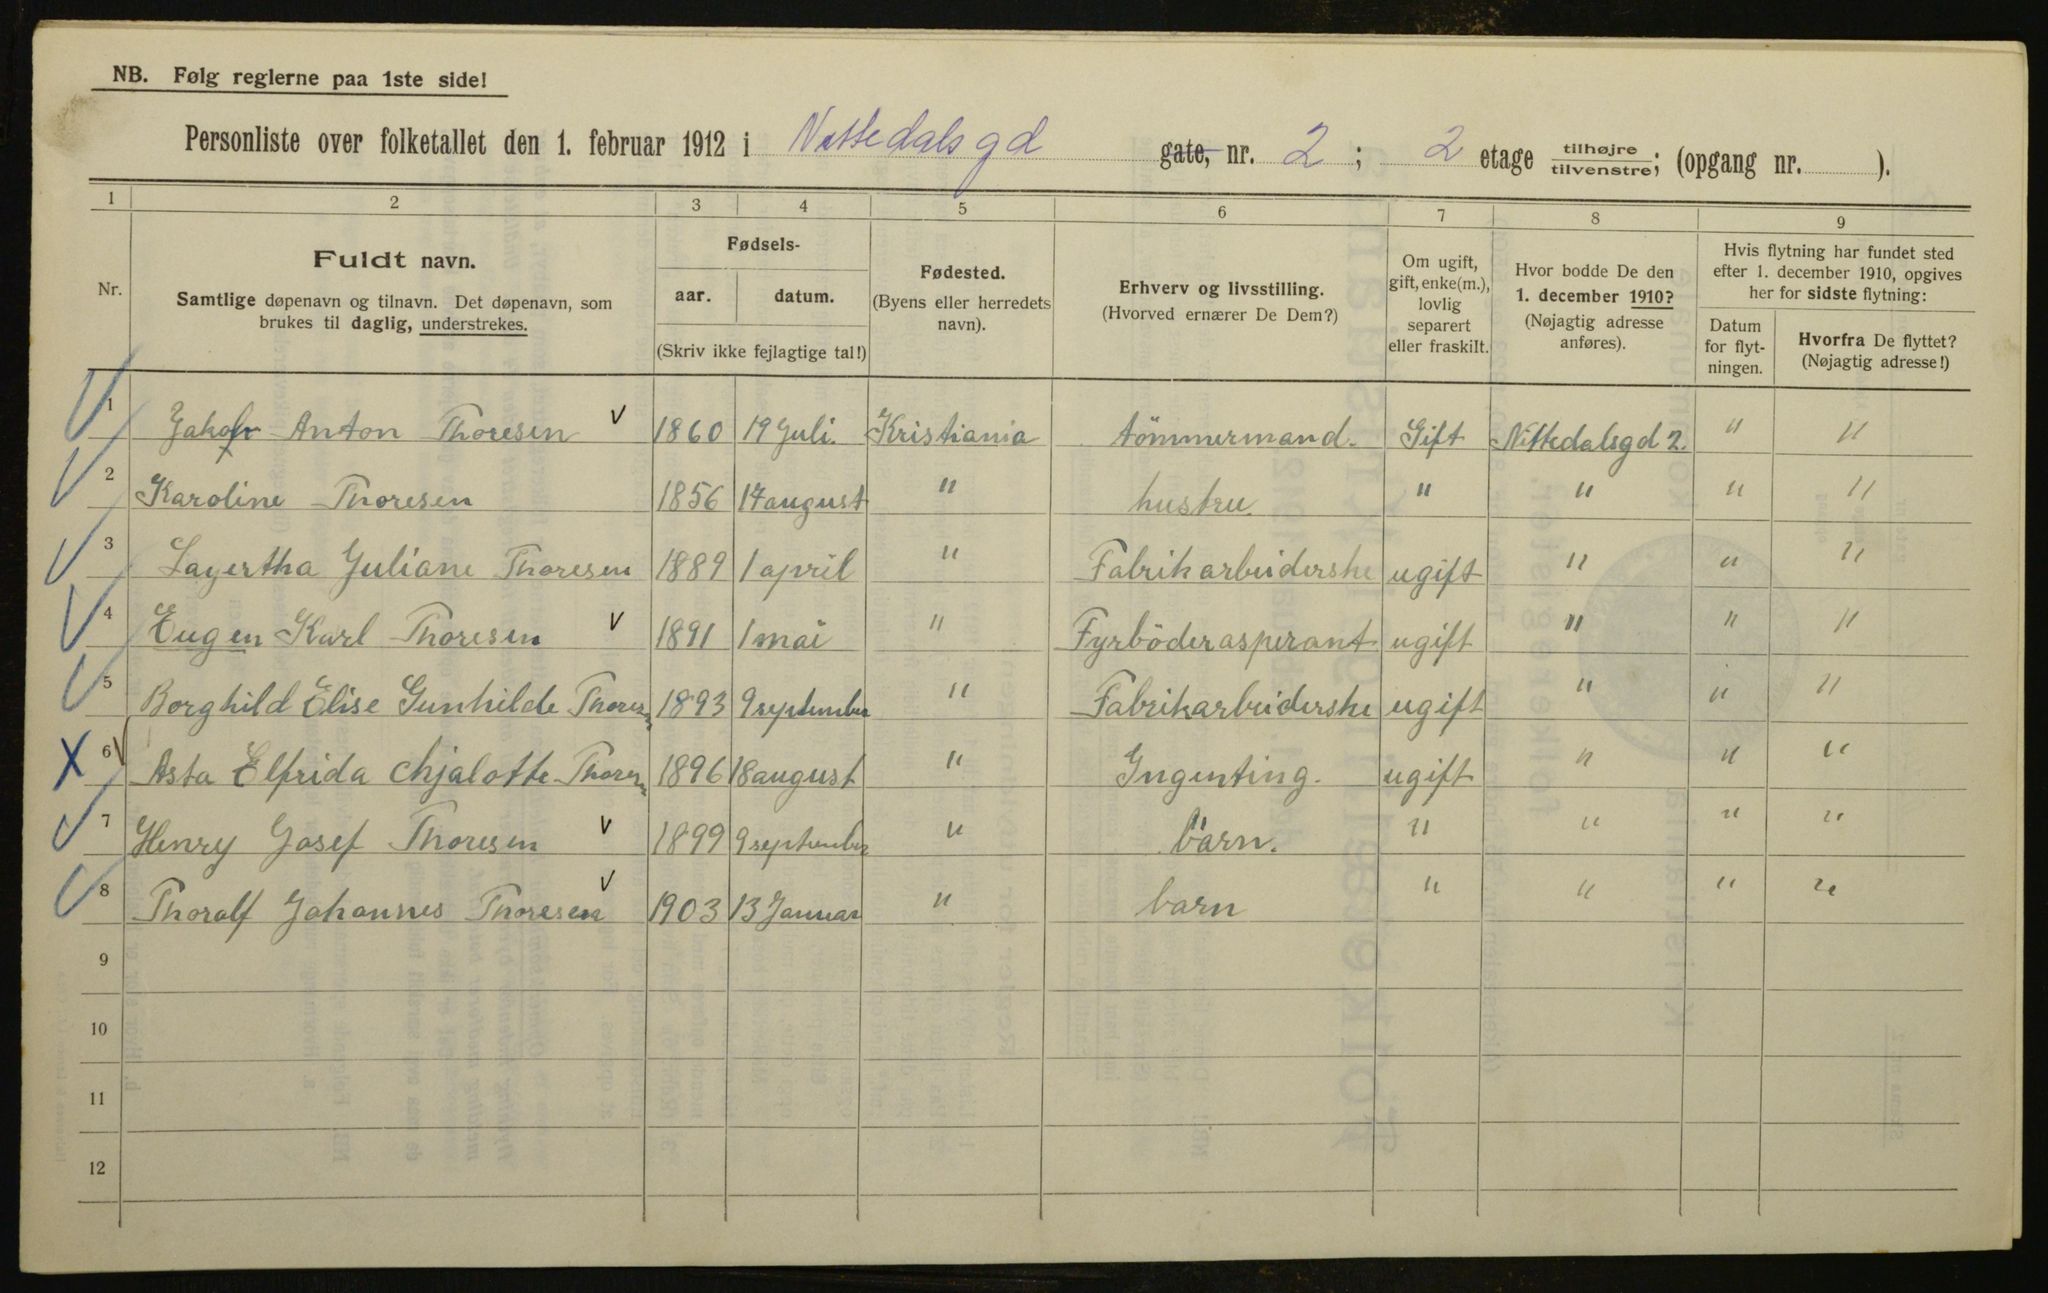 NB. Følg reglerne paa 1ste side!
Personliste over folketallet den 1. februar 1912 i Nittedalsgd gate, nr. 2; 2 etage tilhøjre/tilvenstre; (opgang nr. ).
1 2 3 4 5 6 7 8 9
Nr.
Fuldt navn.
Samtlige døpenavn og tilnavn. Det døpenavn, som
brukes til daglig, understrekes.
Fødsels-
aar. datum.
(Skriv ikke fejlagtige tal!)
Fødested.
(Byens eller herredets
navn).
Erhverv og livsstilling.
(Hvorved ernærer De Dem?)
Om ugift,
gift, enke(m.),
lovlig
separert
eller fraskilt.
Hvor bodde De den
1. december 1910?
(Nøjagtig adresse
anføres).
Hvis flytning har fundet sted
efter 1. december 1910, opgives
her for sidste flytning:
Datum
for flyt-
ningen.
Hvorfra De flyttet?
(Nøjagtig adresse!)
1 Jakob Anton Thoresen 1860 19 Juli. Kristiania tömmermand. Gift Nittedalsgd 2. " "
2 Karoline Thoresen 1856 17 august " hustru. " " " "
3 Lagertha Juliane Thoresen 1889 1 april " Fabrikarbeiderske ugift " " "
4 Eugen Karl Thoresen 1891 1 mai " Fyrböderaspirant ugift " " "
5 Borghild Elise Gunhilde Thoresen 1893 9 september " Fabrikarbeiderske ugift " " "
6 Asta Elfrida Chjalotte Thoresen 1896 18 august " Ingenting. ugift " " "
7 Henry Josef Thoresen 1899 9 september " barn. " " " "
8 Thoralf Johannes Thoresen 1903 13 Januar " barn " " " "
9
10
11
12